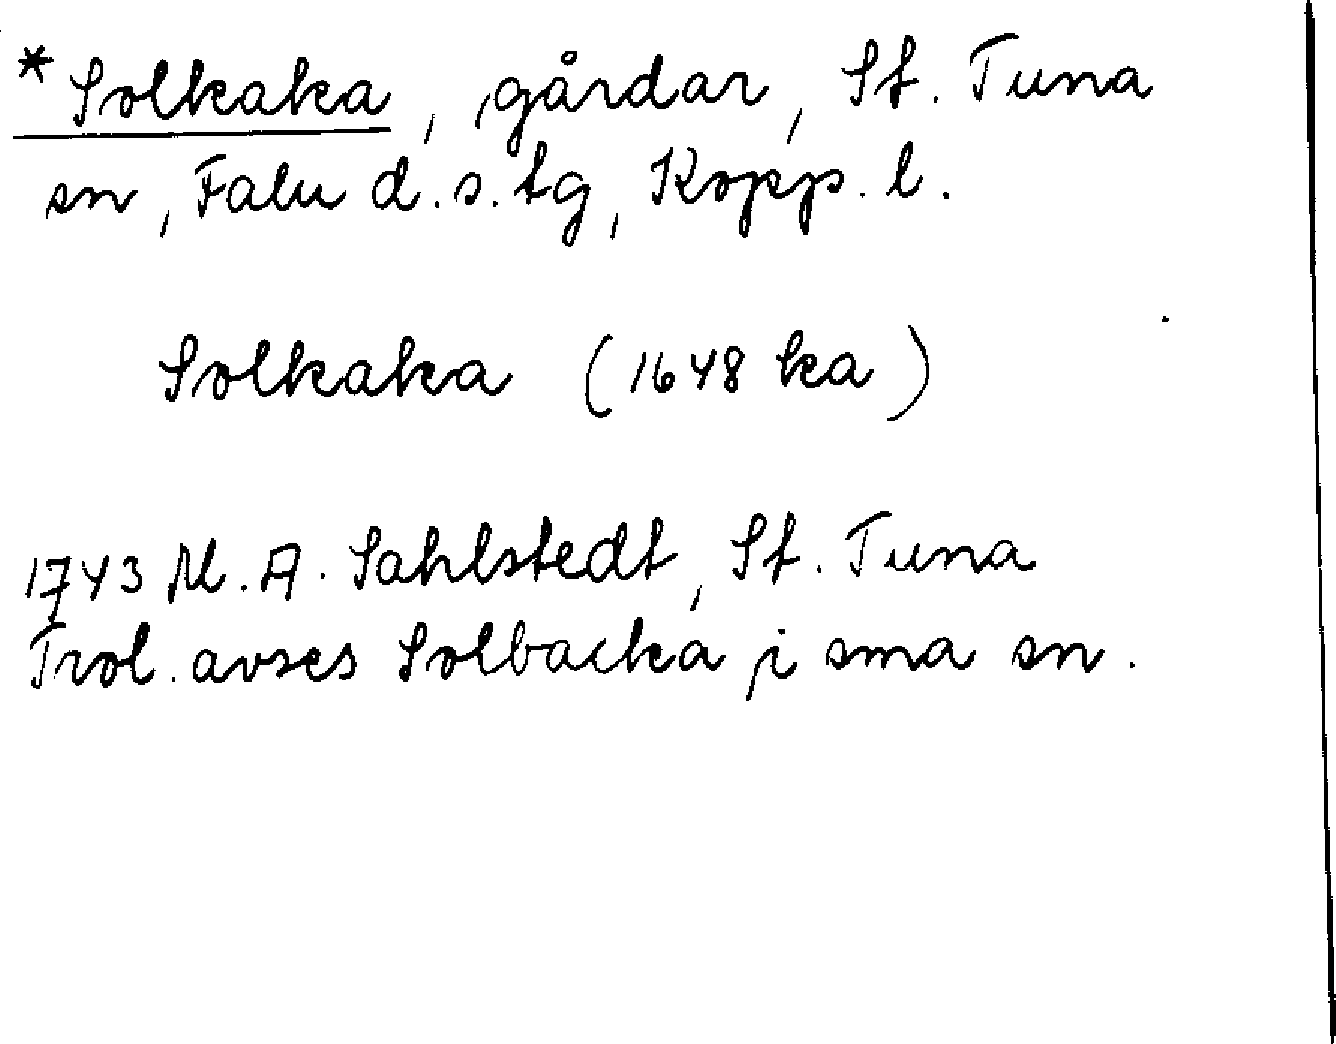 *Solkaka, gårdar, St. Tuna
sn, Falu d.s.tg, Kopp. l.
Solkaka (1648 ka)
1743 M. A. Sahlstedt, St. Tuna
Trol. avses Solbacka, i sma sn.